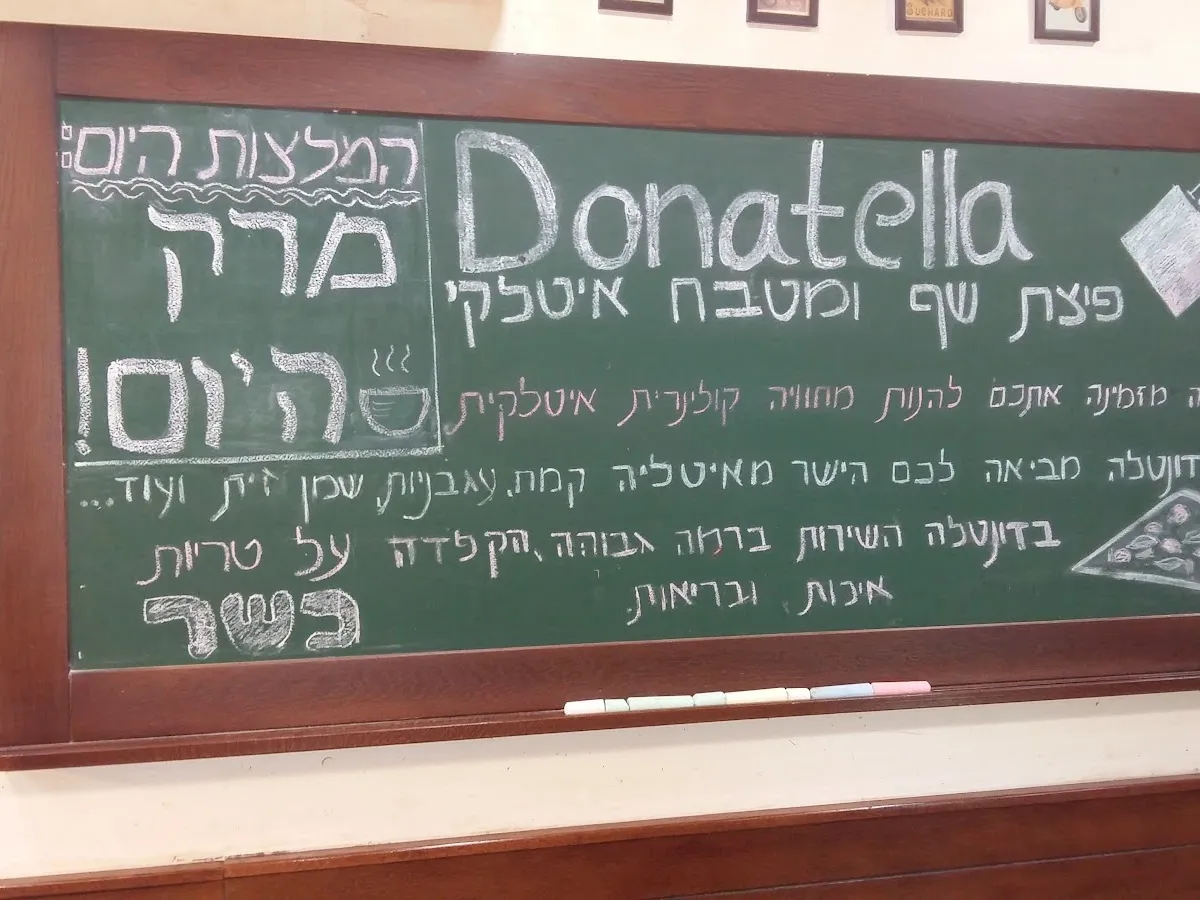 המלצות היום:
מרק
היום!
Donatella
פיצת שף ומטבח איטלקי
מזמינה אתכם להנות מחוויה קולינרית איטלקית
דונטלה מביאה לכם הישר מאיטליה קמח, עגבניות, שמן זית ועוד...
בדונטלה השירות ברמה גבוהה, הקפדה על טריות
איכות ובריאות.
כשר
SUCHARD